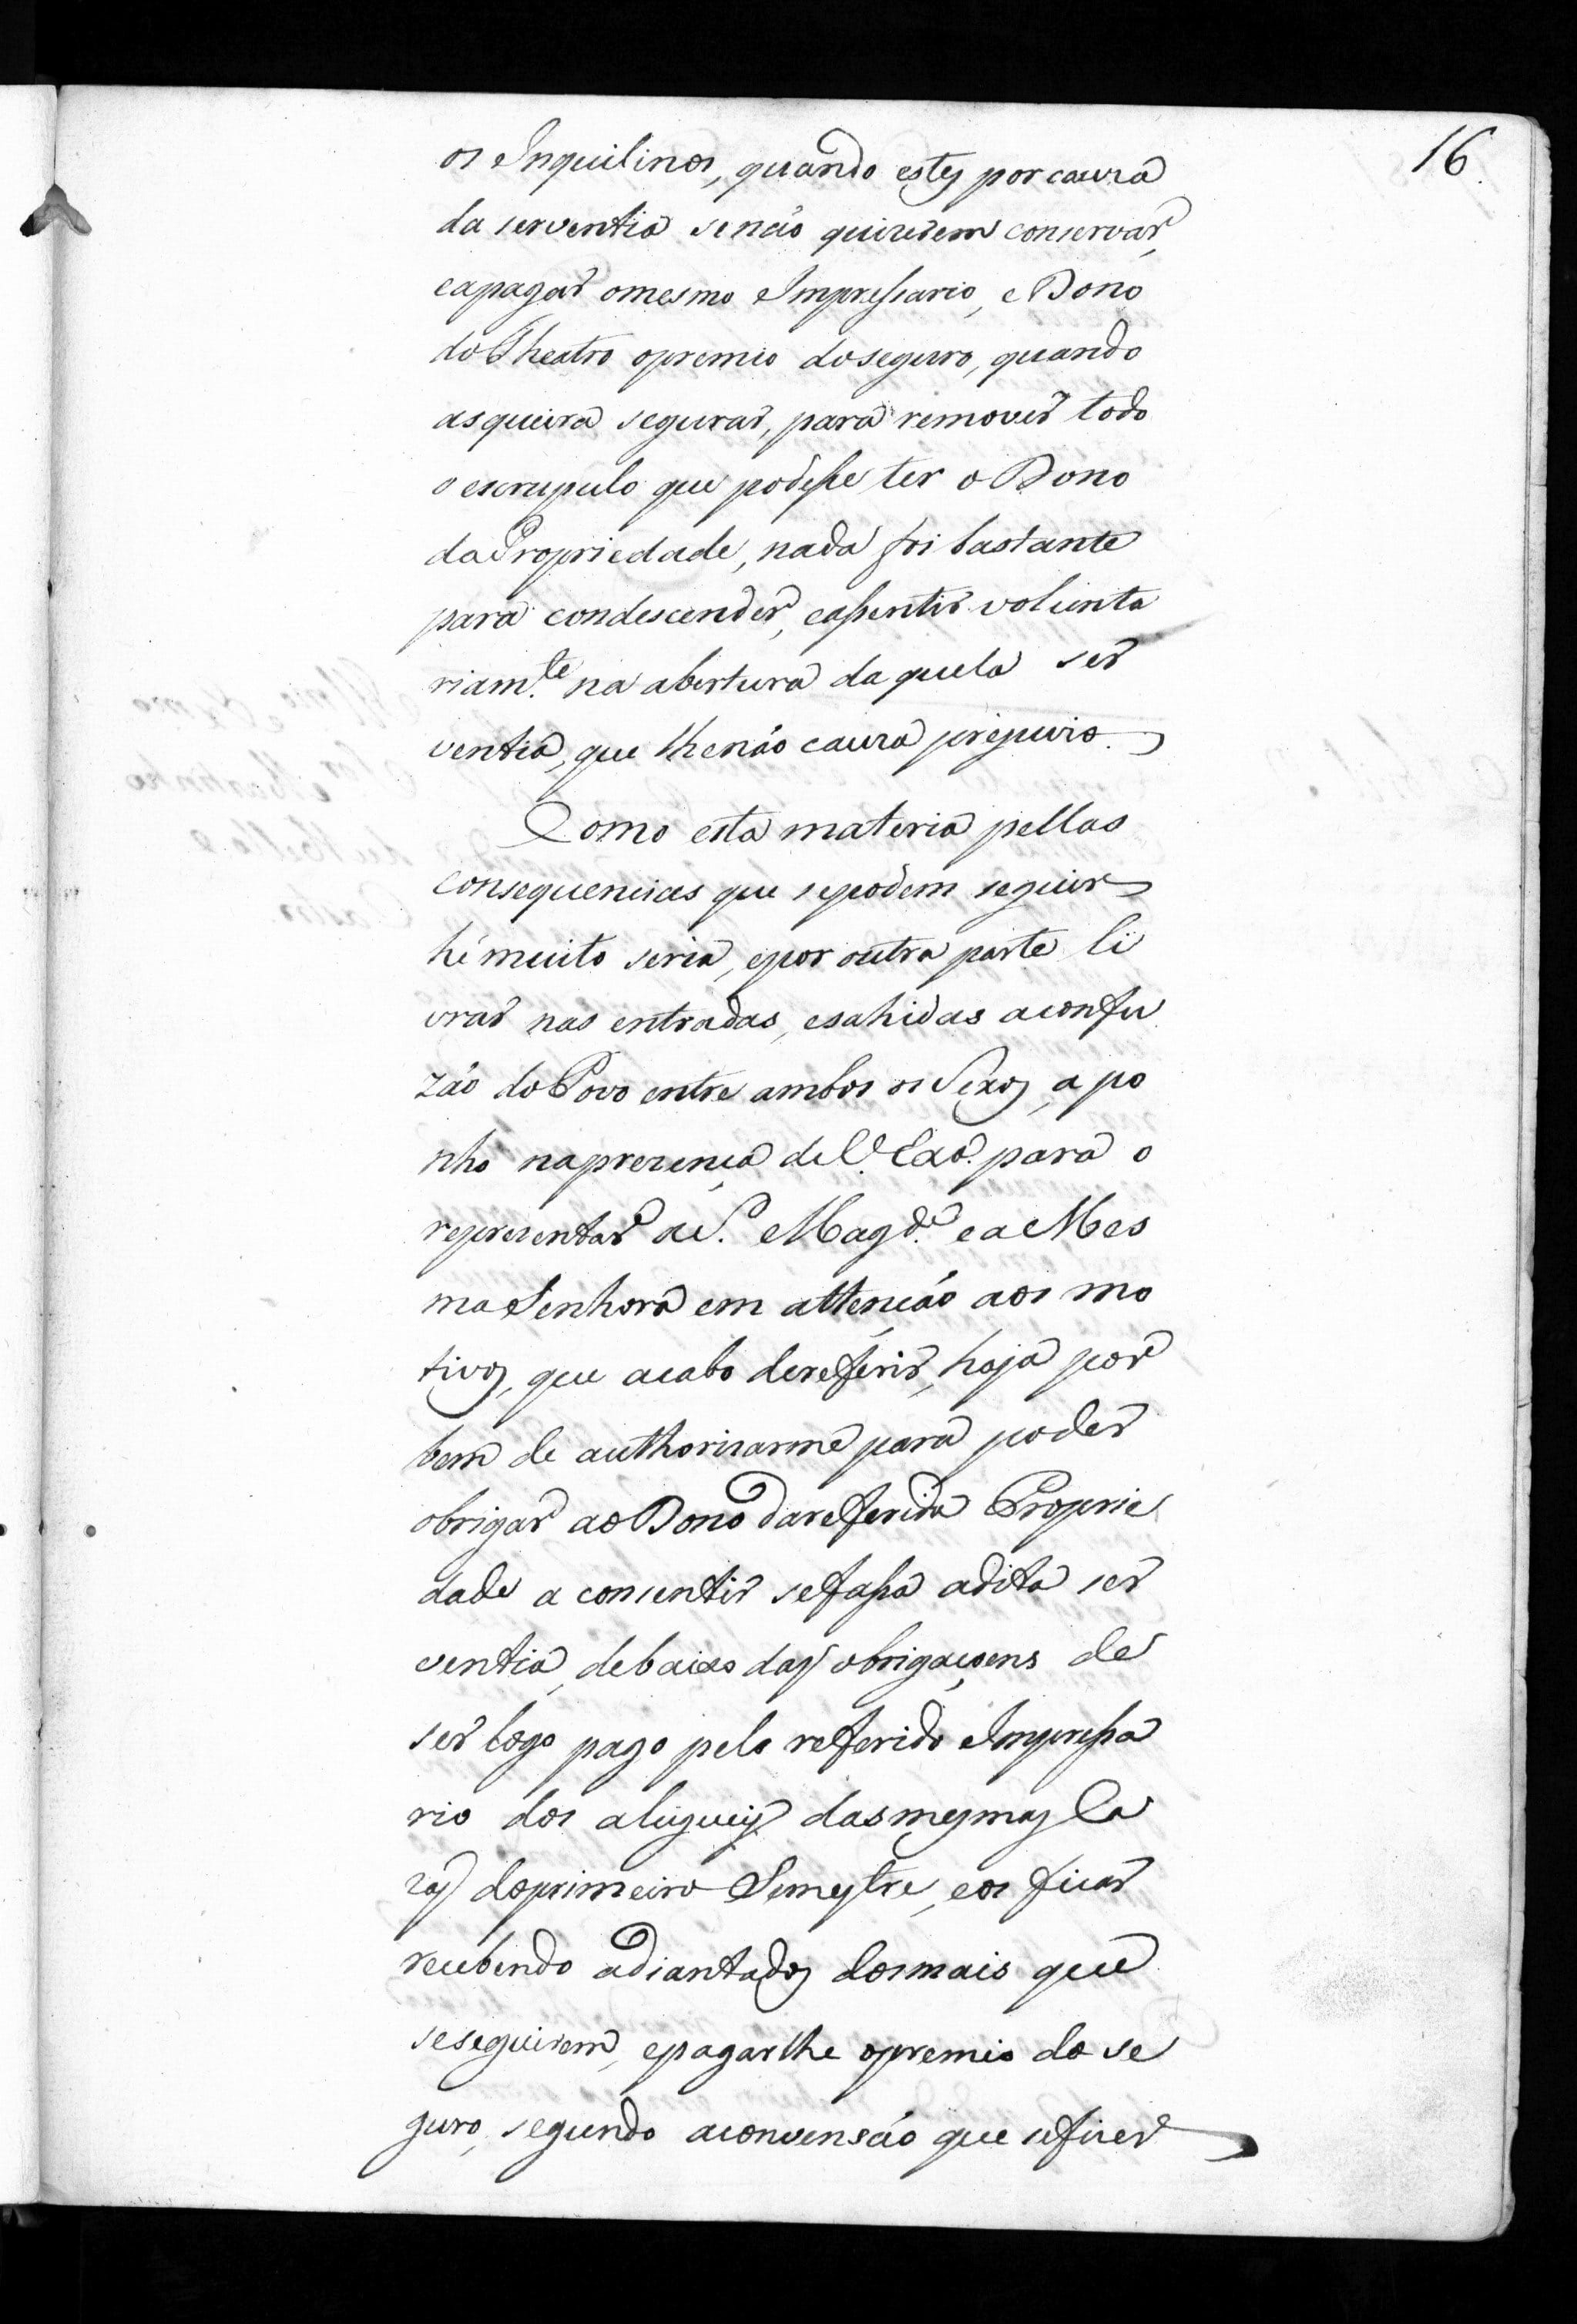 16.
os Inquilinos, quando estes por cauza
da serventia se não quizerem conservar,
e a pagar o mesmo Impressario, e Dono
do Theatro o premio do seguro, quando
as queira segurar, para remover todo
o escrupulo que podesse ter o Dono
da Propriedade, nada foi bastante
para condescender, e assentir volunta
riam.te na abertura daquela ser
ventia, que lhe não cauza prejuizo.
Como esta materia pellas
consequencias que se podem seguir
hé muito seria, e por outra parte li
vrar nas entradas, e sahidas a confu
zão do Povo entre ambos os Sexos, a po
nho na prezença de V. Exa. para o
reprezentar a S. Magd.e e a Mes
ma Senhora em attenção aos mo
tivos, que acabo de referir, haja por
bem de authorizarme para poder
obrigar ao Dono da referida Proprie
dade a consentir se fassa a dita ser
ventia, debaixo das obrigaçoens de
ser logo pago pelo referido Impressa
rio dos alugueis das mesmas Ca
zas do primeiro Semestre, e os ficar
recebendo adiantados dos mais que
se seguirem, e pagarlhe o premio do se
guro, segundo a convensão que se fizer